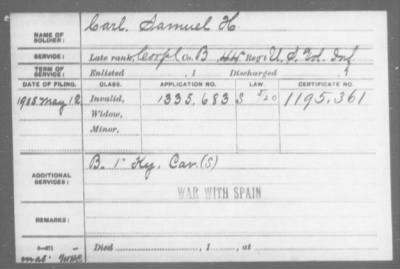 NAME OF SOLDIER: Carl, Samuel H.
SERVICE: Late rank, Corpl Co. B 44 Reg't U.S. Vol. Inf.
TERM OF SERVICE: Enlisted , 1 Discharged , 1
DATE OF FILING. CLASS. APPLICATION NO. LAW CERTIFICATE NO.
1905 May 12 Invalid, 1335.683 1195.361
Widow,
Minor,
ADDITIONAL SERVICES: B. 1" Ky. Cav. (S)
WAR WITH SPAIN
REMARKS:
Died , 1 , at